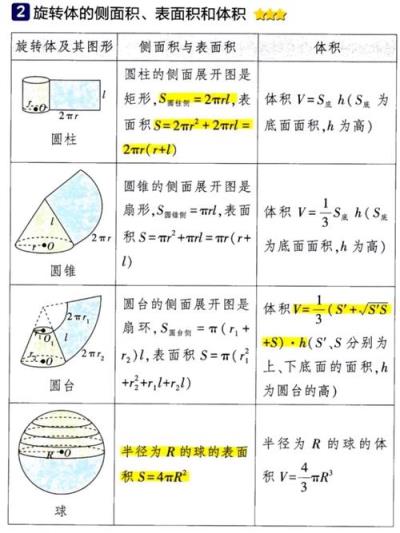 2 旋转体的侧面积、表面积和体积 ★★★
旋转体及其图形 侧面积与表面积 体积
r O l
2πr
圆柱
圆柱的侧面展开图是
矩形,S圆柱侧=2πrl,表
面积S=2πr²+2πrl=
2πr(r+l)
体积 V=S底 h(S底 为
底面面积,h 为高)
l
r O 2πr
圆锥
圆锥的侧面展开图是
扇形,S圆锥侧=πrl,表面
积S=πr²+πrl=πr(r+
l)
体积 V=1/3 S底 h(S底
为底面面积,h 为高)
2πr₁
r₁ O₁ l
2πr₂
r₂ O
圆台
圆台的侧面展开图是
扇环,S圆台侧=π(r₁+
r₂)l,表面积 S=π(r₁²
+r₂²+r₁l+r₂l)
体积V=1/3(S′+√S′S
+S)·h(S′、S分别为
上、下底面的面积,h
为圆台的高)
R O
球
半径为R的球的表面
积S=4πR²
半径为 R 的球的体
积 V=4/3πR³